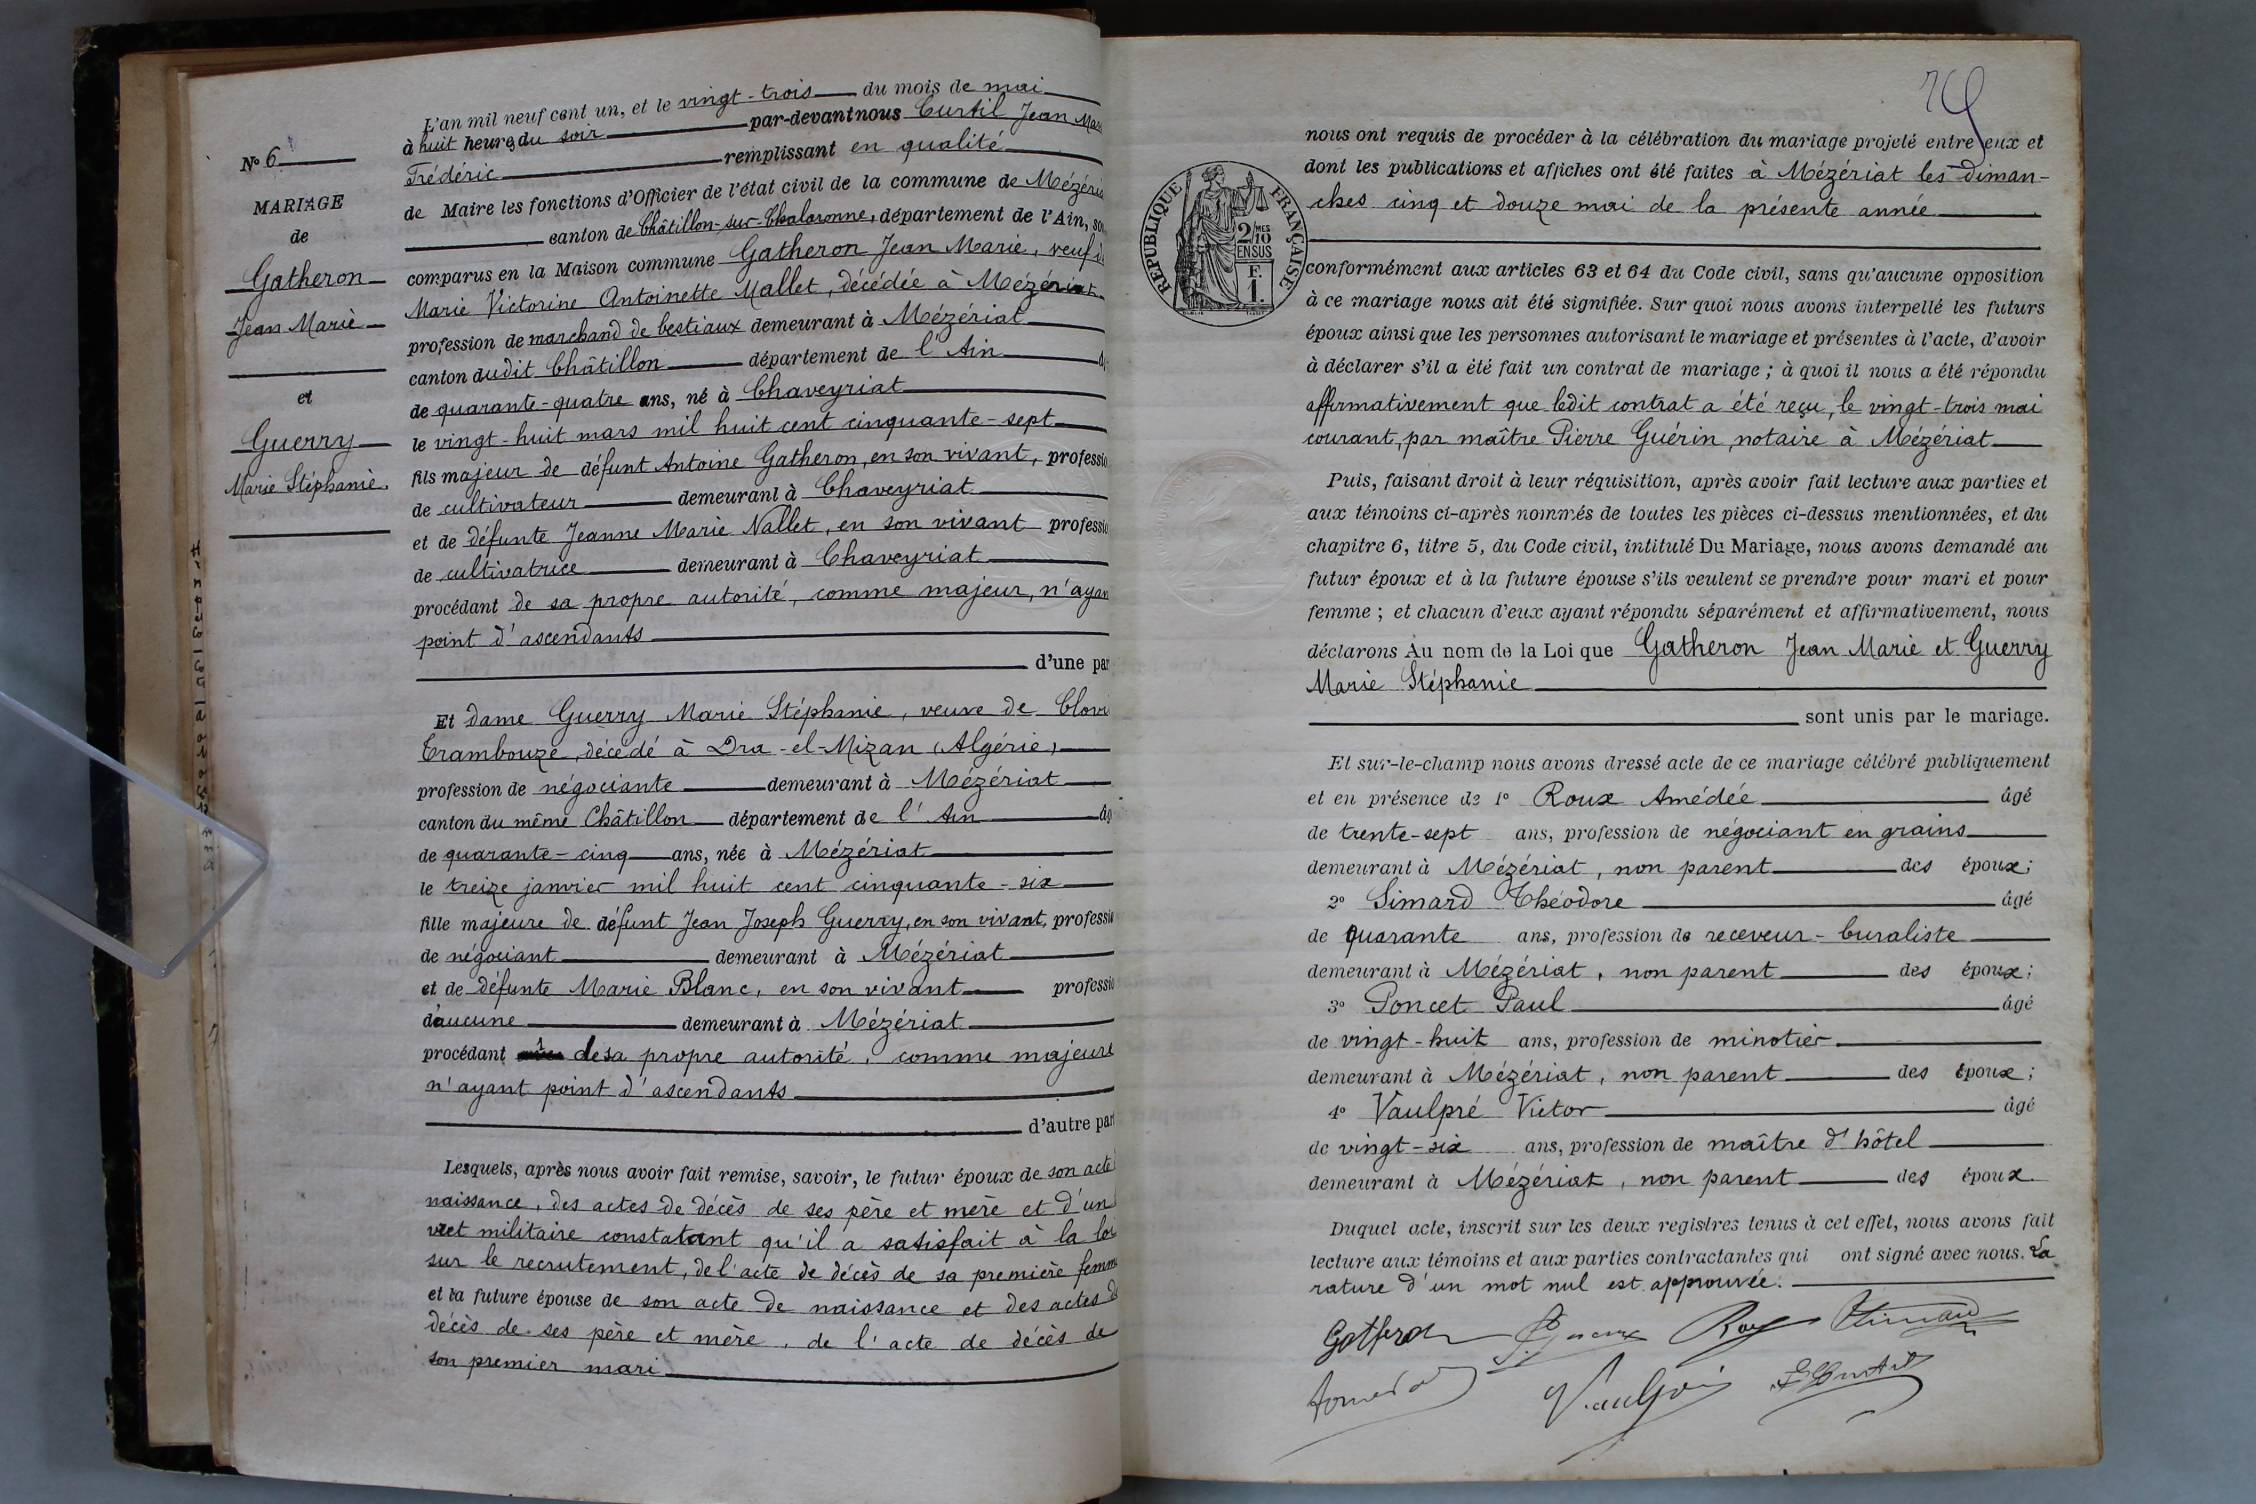 N° 6
MARIAGE
de
Gatheron
Jean Marie
et
Guerry
Marie Stéphanie.
L'an mil neuf cent un, et le vingt-trois du mois de mai
à huit heures du soir par-devant nous Curtil Jean Mar
Frédéric remplissant en qualité
de Maire les fonctions d'Officier de l'état civil de la commune de Mézéria
canton de Châtillon-sur-Chalaronne, département de l'Ain, so
comparus en la Maison commune Gatheron Jean Marie, veuf d
Marie Victorine Antoinette Mallet, décédée à Mézériat
profession de marchand de bestiaux demeurant à Mézériat
canton dudit Châtillon département de l'Ain
de quarante-quatre ans, né à Chaveyriat
le vingt-huit mars mil huit cent cinquante-sept
fils majeur de défunt Antoine Gatheron, en son vivant, professio
de cultivateur demeurant à Chaveyriat
et de défunte Jeanne Marie Nallet, en son vivant professio
de cultivatrice demeurant à Chaveyriat
procédant de sa propre autorité, comme majeur, n'ayan
point d'ascendants
d'une par
Et dame Guerry Marie Stéphanie, veuve de Clovi
Trambouze, décédé à Dra-el-Mizan (Algérie)
profession de négociante demeurant à Mézériat
canton du même Châtillon département de l'Ain âg
de quarante-cinq ans, née à Mézériat
le treize janvier mil huit cent cinquante-six
fille majeure de défunt Jean Joseph Guerry, en son vivant, professio
de négociant demeurant à Mézériat
et de défunte Marie Blanc, en son vivant professio
d'aucune demeurant à Mézériat
procédant de sa propre autorité, comme majeure
n'ayant point d'ascendants
d'autre part
Lesquels, après nous avoir fait remise, savoir, le futur époux de son acte
naissance, des actes de décès de ses père et mère et d'un
vret militaire constatant qu'il a satisfait à la loi
sur le recrutement, de l'acte de décès de sa première femme
et la future épouse de son acte de naissance et des actes d
décès de ses père et mère, de l'acte de décès de
son premier mari
RÉPUBLIQUE FRANÇAISE
2/10 MES
EN SUS
F.
1.
nous ont requis de procéder à la célébration du mariage projeté entre eux et
dont les publications et affiches ont été faites à Mézériat les diman-
ches cinq et douze mai de la présente année
conformément aux articles 63 et 64 du Code civil, sans qu'aucune opposition
à ce mariage nous ait été signifiée. Sur quoi nous avons interpellé les futurs
époux ainsi que les personnes autorisant le mariage et présentes à l'acte, d'avoir
à déclarer s'il a été fait un contrat de mariage ; à quoi il nous a été répondu
affirmativement que ledit contrat a été reçu, le vingt-trois mai
courant, par maître Pierre Guérin, notaire à Mézériat
Puis, faisant droit à leur réquisition, après avoir fait lecture aux parties et
aux témoins ci-après nommés de toutes les pièces ci-dessus mentionnées, et du
chapitre 6, titre 5, du Code civil, intitulé Du Mariage, nous avons demandé au
futur époux et à la future épouse s'ils veulent se prendre pour mari et pour
femme ; et chacun d'eux ayant répondu séparément et affirmativement, nous
déclarons Au nom de la Loi que Gatheron Jean Marie et Guerry
Marie Stéphanie
sont unis par le mariage.
Et sur-le-champ nous avons dressé acte de ce mariage célébré publiquement
et en présence de 1° Roux Amédée âgé
de trente-sept ans, profession de négociant en grains
demeurant à Mézériat, non parent des époux ;
2° Simard Théodore âgé
de quarante ans, profession de receveur-buraliste
demeurant à Mézériat, non parent des époux ;
3° Poncet Paul âgé
de vingt-huit ans, profession de minotier
demeurant à Mézériat, non parent des époux ;
4° Vaulpré Victor âgé
de vingt-six ans, profession de maître d'hôtel
demeurant à Mézériat, non parent des époux.
Duquel acte, inscrit sur les deux registres tenus à cet effet, nous avons fait
lecture aux témoins et aux parties contractantes qui ont signé avec nous. La
rature d'un mot nul est approuvée.